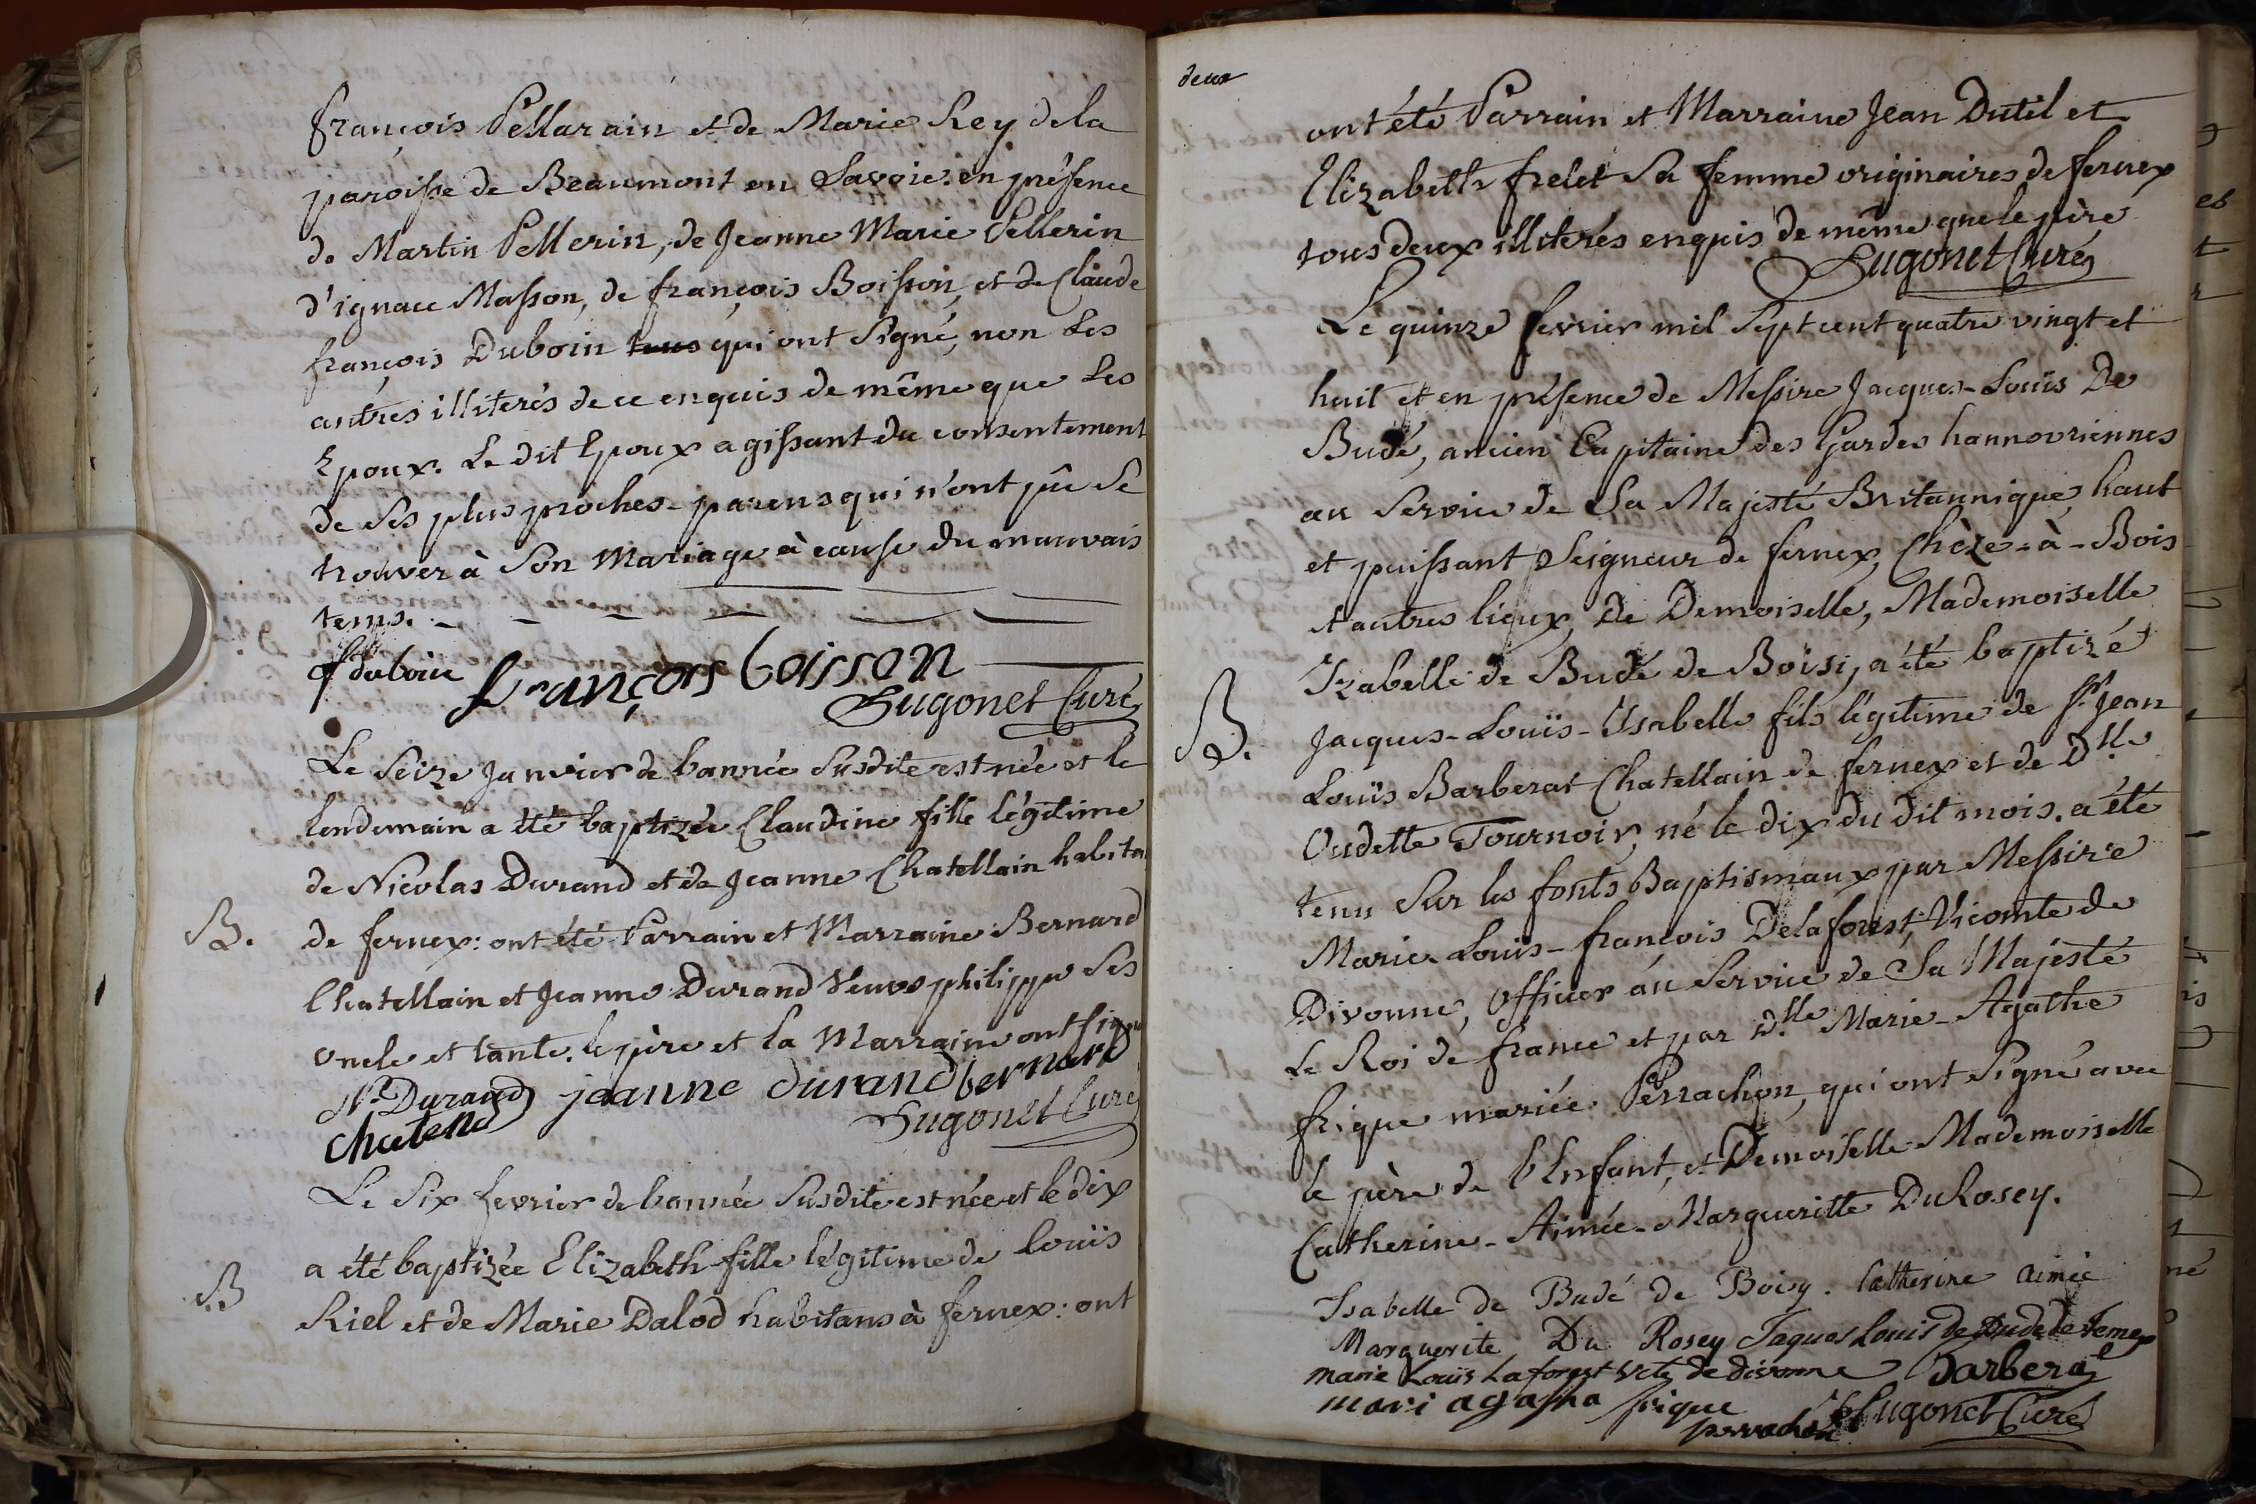 françois Pellarain et de Marie Rey de la
paroisse de Beaumont en Savoie. en présence
de Martin Pellerin, de Jeanne Marie Pellerin
d'ignace Masson, de françois Boisson, et de Claude
françois Duboin tous qui ont Signé, non Les
autres illiterés de ce enquis de même que Les
Epoux. Le dit Epoux agissant du consentement
de Ses plus proches parens qui n'ont pû Se
trouver à Son Mariage à cause du mauvais
temps.
f duboin françois boisson
Hugonet Curé
Le Seize Janvier de l'année Susdite est née et le
lendemain a été baptizée Claudine fille légitime
de Nicolas Durand et de Jeanne Chatellain habita
B. de fernex: ont été Parrain et Marraine Bernard
Chatellain et Jeanne Durand Veuve philippe Ses
oncle et tante. le père et la Marraine ont signé
N. Durand jeanne durand bernard
chatena Hugonet Curé
Le Six fevrier de l'année Susdite est née et le dix
a été baptizée Elizabeth fille légitime de Louïs
B Riel et de Marie Dalod habitans à fernex: ont
deux
ont été Parrain et Marraine Jean Dutil et
Elizabeth frelet Sa femme originaires de fernex
tous deux illiterés enquis de même que le père
Hugonet Curé
Le quinze fevrier mil Sept cent quatre vingt et
huit et en présence de Messire Jacques-Louïs De
Budé, ancien Capitaine des Gardes hannovriennes
au Service de Sa Majesté Britannique, haut
et puissant Seigneur de fernex, Chèze-à-Bois
et autres lieux, De Demoiselle, Mademoiselle
Izabelle de Budé de Boisi, a été baptizé
B. Jacques-Louïs-Isabelle fils légitime de Sr. Jean
Louïs Barberat Chatellain de fernex et de Dlle.
Oudette Tournoir, né le dix du dit mois. a été
tenu Sur les fonts Baptismaux par Messire
Marie-Louïs-françois Delaforest, Vicomte de
Divonne, Officier au Service de Sa Majesté
Le Roi de france et par Dlle. Marie-Agathe
frique mariée Perrachon, qui ont Signé avec
le père de l'Enfant, et Demoiselle Mademoiselle
Catherine-Aimée-Margueritte Du Rosey.
Isabelle de Budé de Boisy. Catherine aimée
Marguerite Du Rosey Jaques Louis de Budé de Fernex
marie Louïs Laforest Vcte de divonne Barberat
mari agasha frique
perrachon Hugonet Curé